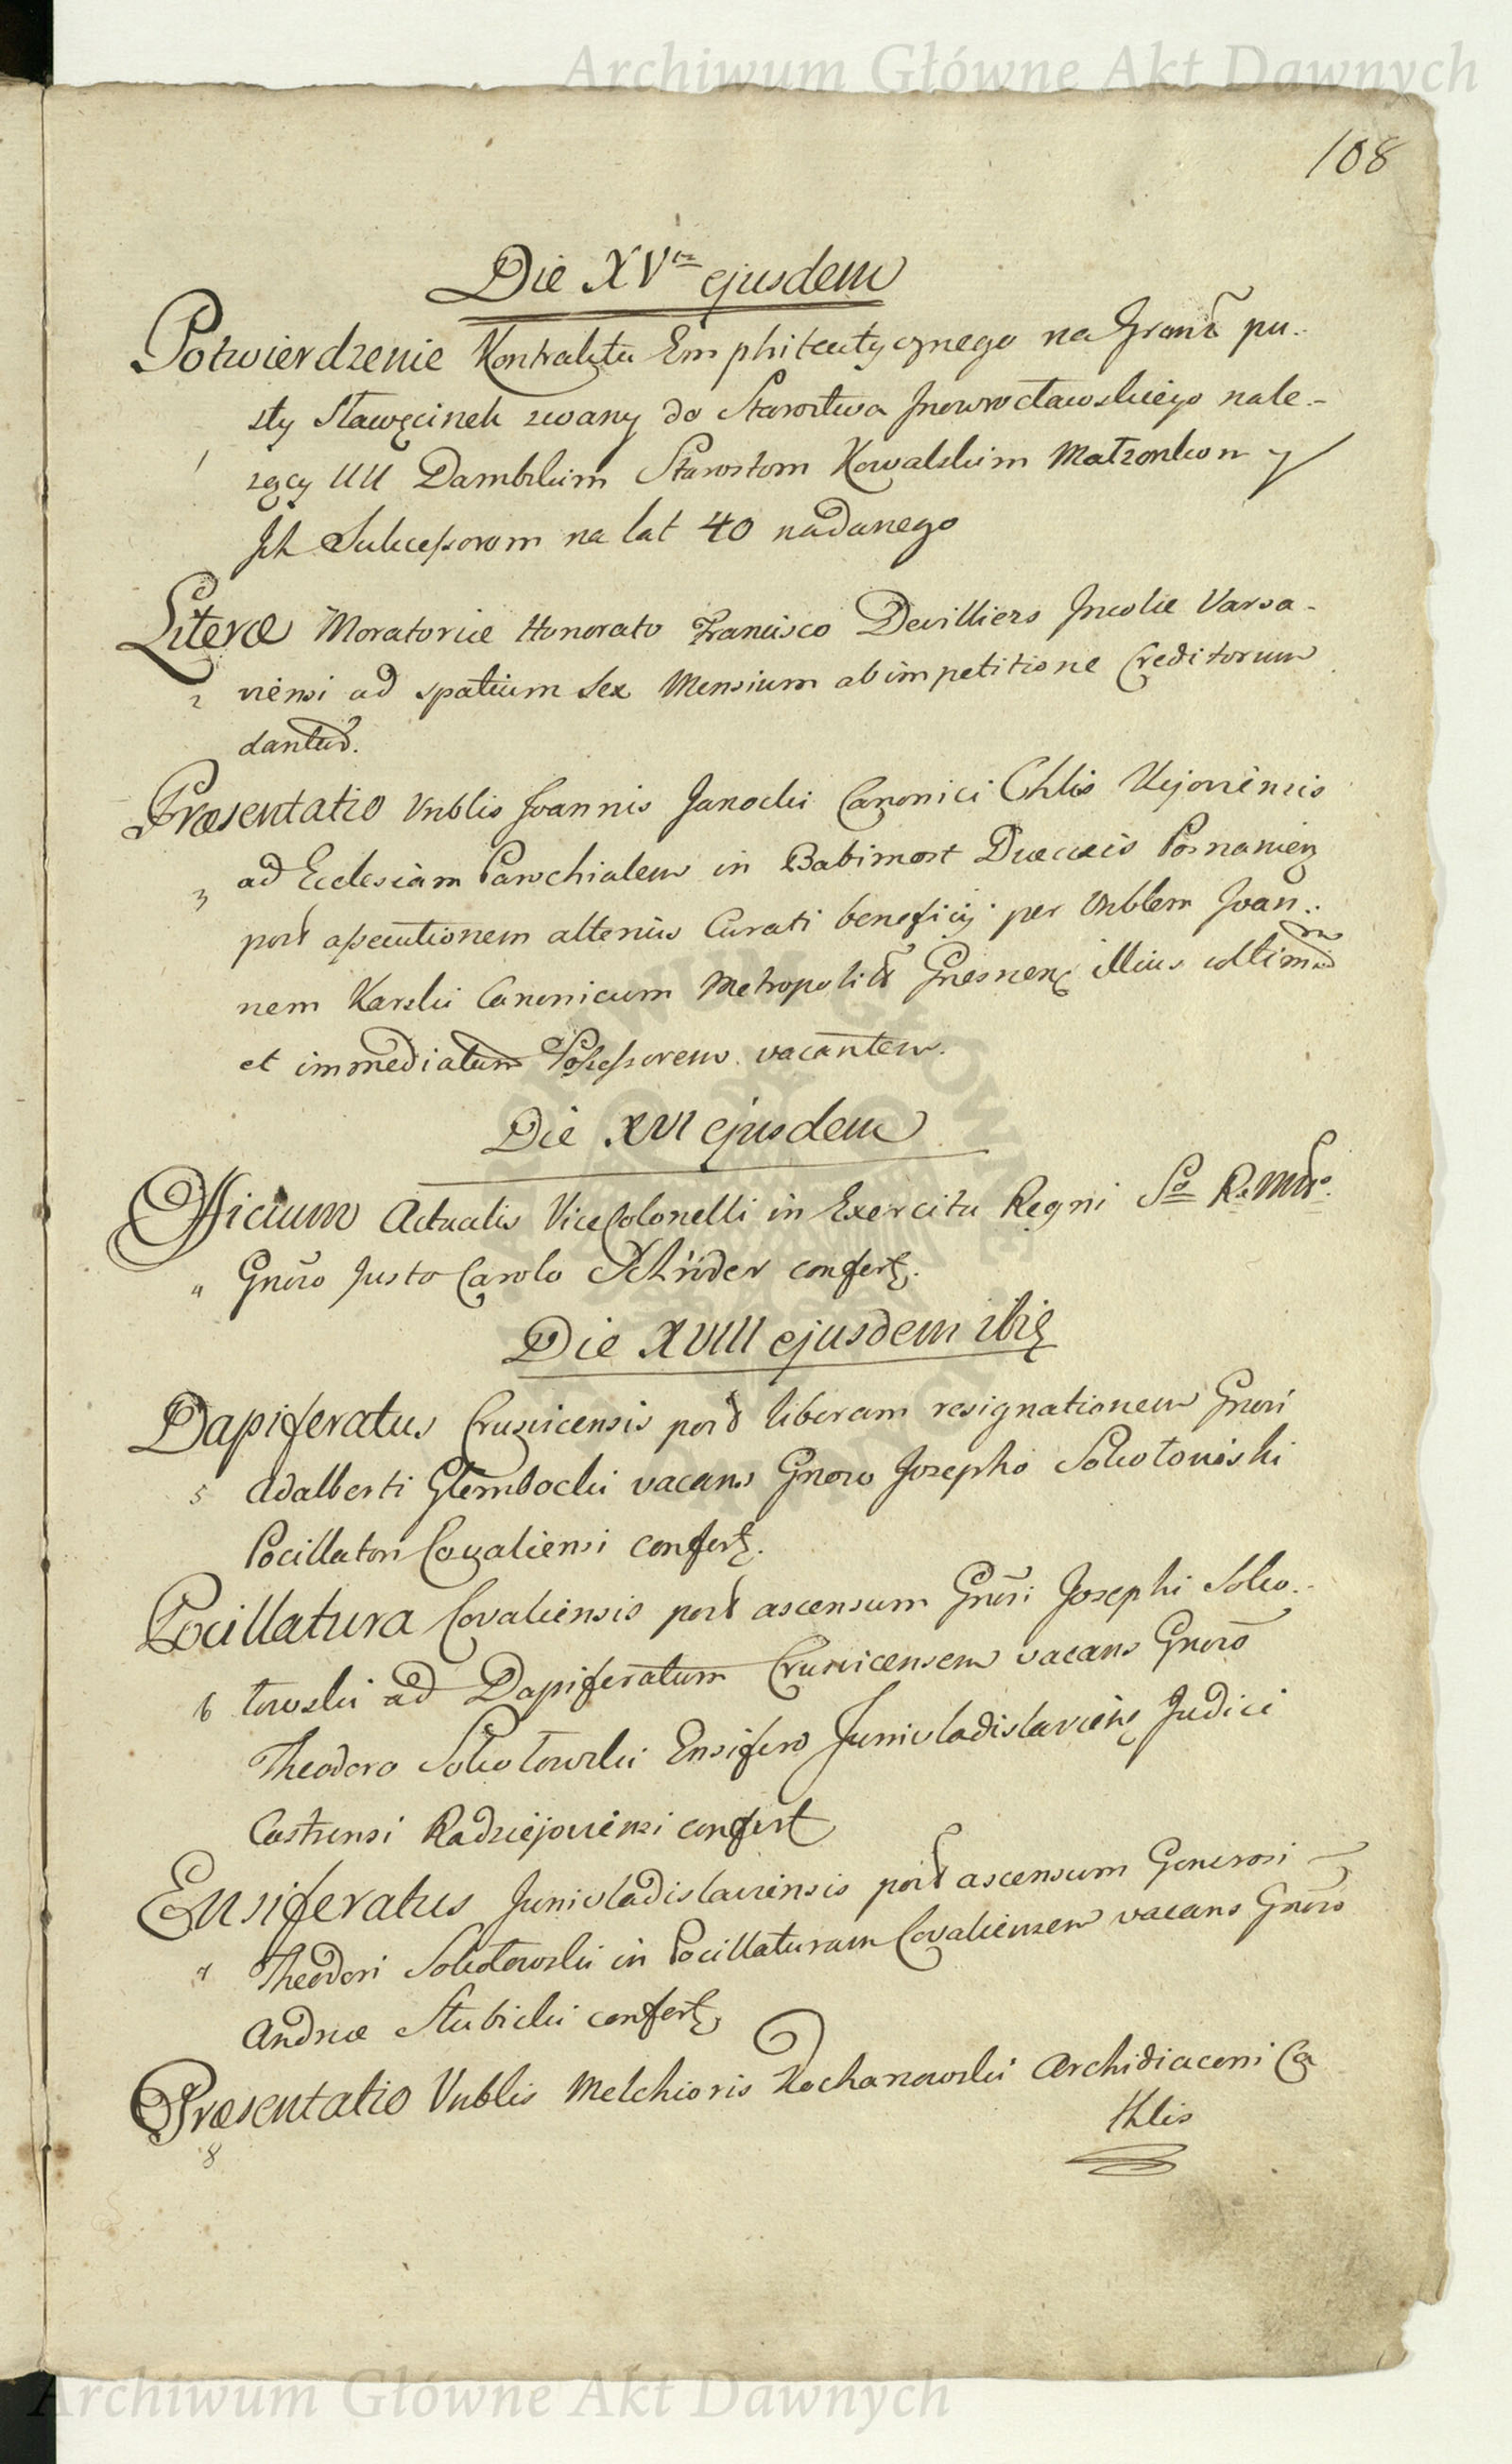 Archiwum Główne Akt Dawnych
108
Die XVta ejusdem
Potwierdzenie Kontraktu Emphiteutycznego na Grunt pu-
sty Sławęcinek zwany do Starostwa Inowrocławskiego nale-
1 zący UU Dambskim Starostom Kowalskim Małzonkom y
Ich Sukcessorom na lat 40 nadanego
Literæ Moratoriæ Honorato Francisco Devilliers Incolæ Varsa-
2 viensi ad spatium sex Mensium ab impetitione Creditorum
dantur.
Præsentatio Vnblis Joannis Janocki Canonici Cthlis Kijoviensis
3 ad Ecclesiam Parochialem in Babimost Diæcesis Posnanien
post assecutionem alterius Curati beneficij per Vnblem Joan-
nem Karski Canonicum Metropolit Gnesnen illius ultimum
et immediatum Possessorem vacantem.
Die XVI ejusdem
Officium Actualis ViceColonelli in Exercitu Regni
4 Gnoso Justo Carolo Schrider confert.
Die XVIII ejusdem ibid
Dapiferatus Crusvicensis post liberam resignationem Gnosi
5 Adalberti Glembocki vacans Gnoso Josepho Sokołowski
Pocillatori Covaliensi confert.
Pocillatura Covaliensis post ascensum Gnosi Josephi Soko-
6 łowski ad Dapiferatum Crusvicensem vacans Gnoso
Theodoro Sokołowski Ensifero Junivladislavien Judici
Castrensi Radziejoviensi confert
Ensiferatus Junivladislaviensis post ascensum Generosi
7 Theodori Sokołowski in Pocillaturam Covaliensem vacans Gnoso
Andreæ Słubicki confert
Præsentatio Vnblis Melchioris Kochanowski Archidiaconi Ca
8 thlis
Archiwum Główne Akt Dawnych